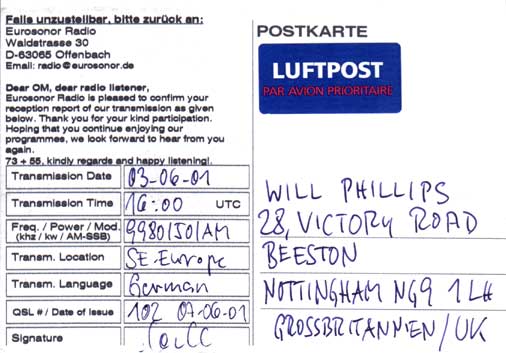 Falls unzustellbar, bitte zurück an:
Eurosonor Radio
Waldstrasse 30
D-63065 Offenbach
Email: radio@eurosonor.de
Dear OM, dear radio listener,
Eurosonor Radio is pleased to confirm your
reception report of our transmission as given
below. Thank you for your kind participation.
Hoping that you continue enjoying our
programmes, we look forward to hear from you
again.
73 + 55, kindly regards and happy listening!
Transmission Date 03-06-01
Transmission Time 16:00 UTC
Freq. / Power / Mod. 9980/50/AM
(khz / kw / AM-SSB)
Transm. Location SE-Europe
Transm. Language German
QSL # / Date of Issue 102 07-06-01
Signature
POSTKARTE
LUFTPOST
PAR AVION PRIORITAIRE
WILL PHILLIPS
28, VICTORY ROAD
BEESTON
NOTTINGHAM NG9 1LH
GROSSBRITANNIEN/UK